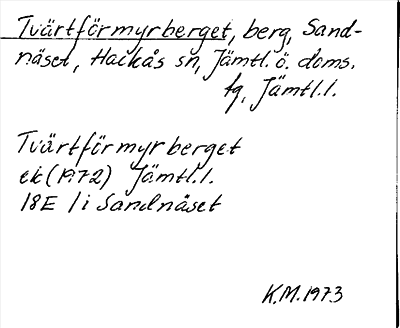 Tvärtförmyrberget, berg, Sand-
näset, Hackås sn, Jämtl. ö. doms.
tg, Jämtl. l.
Tvärtförmyrberget
ek (1972) Jämtl. l.
18E 1 i Sandnäset
K.M. 1973